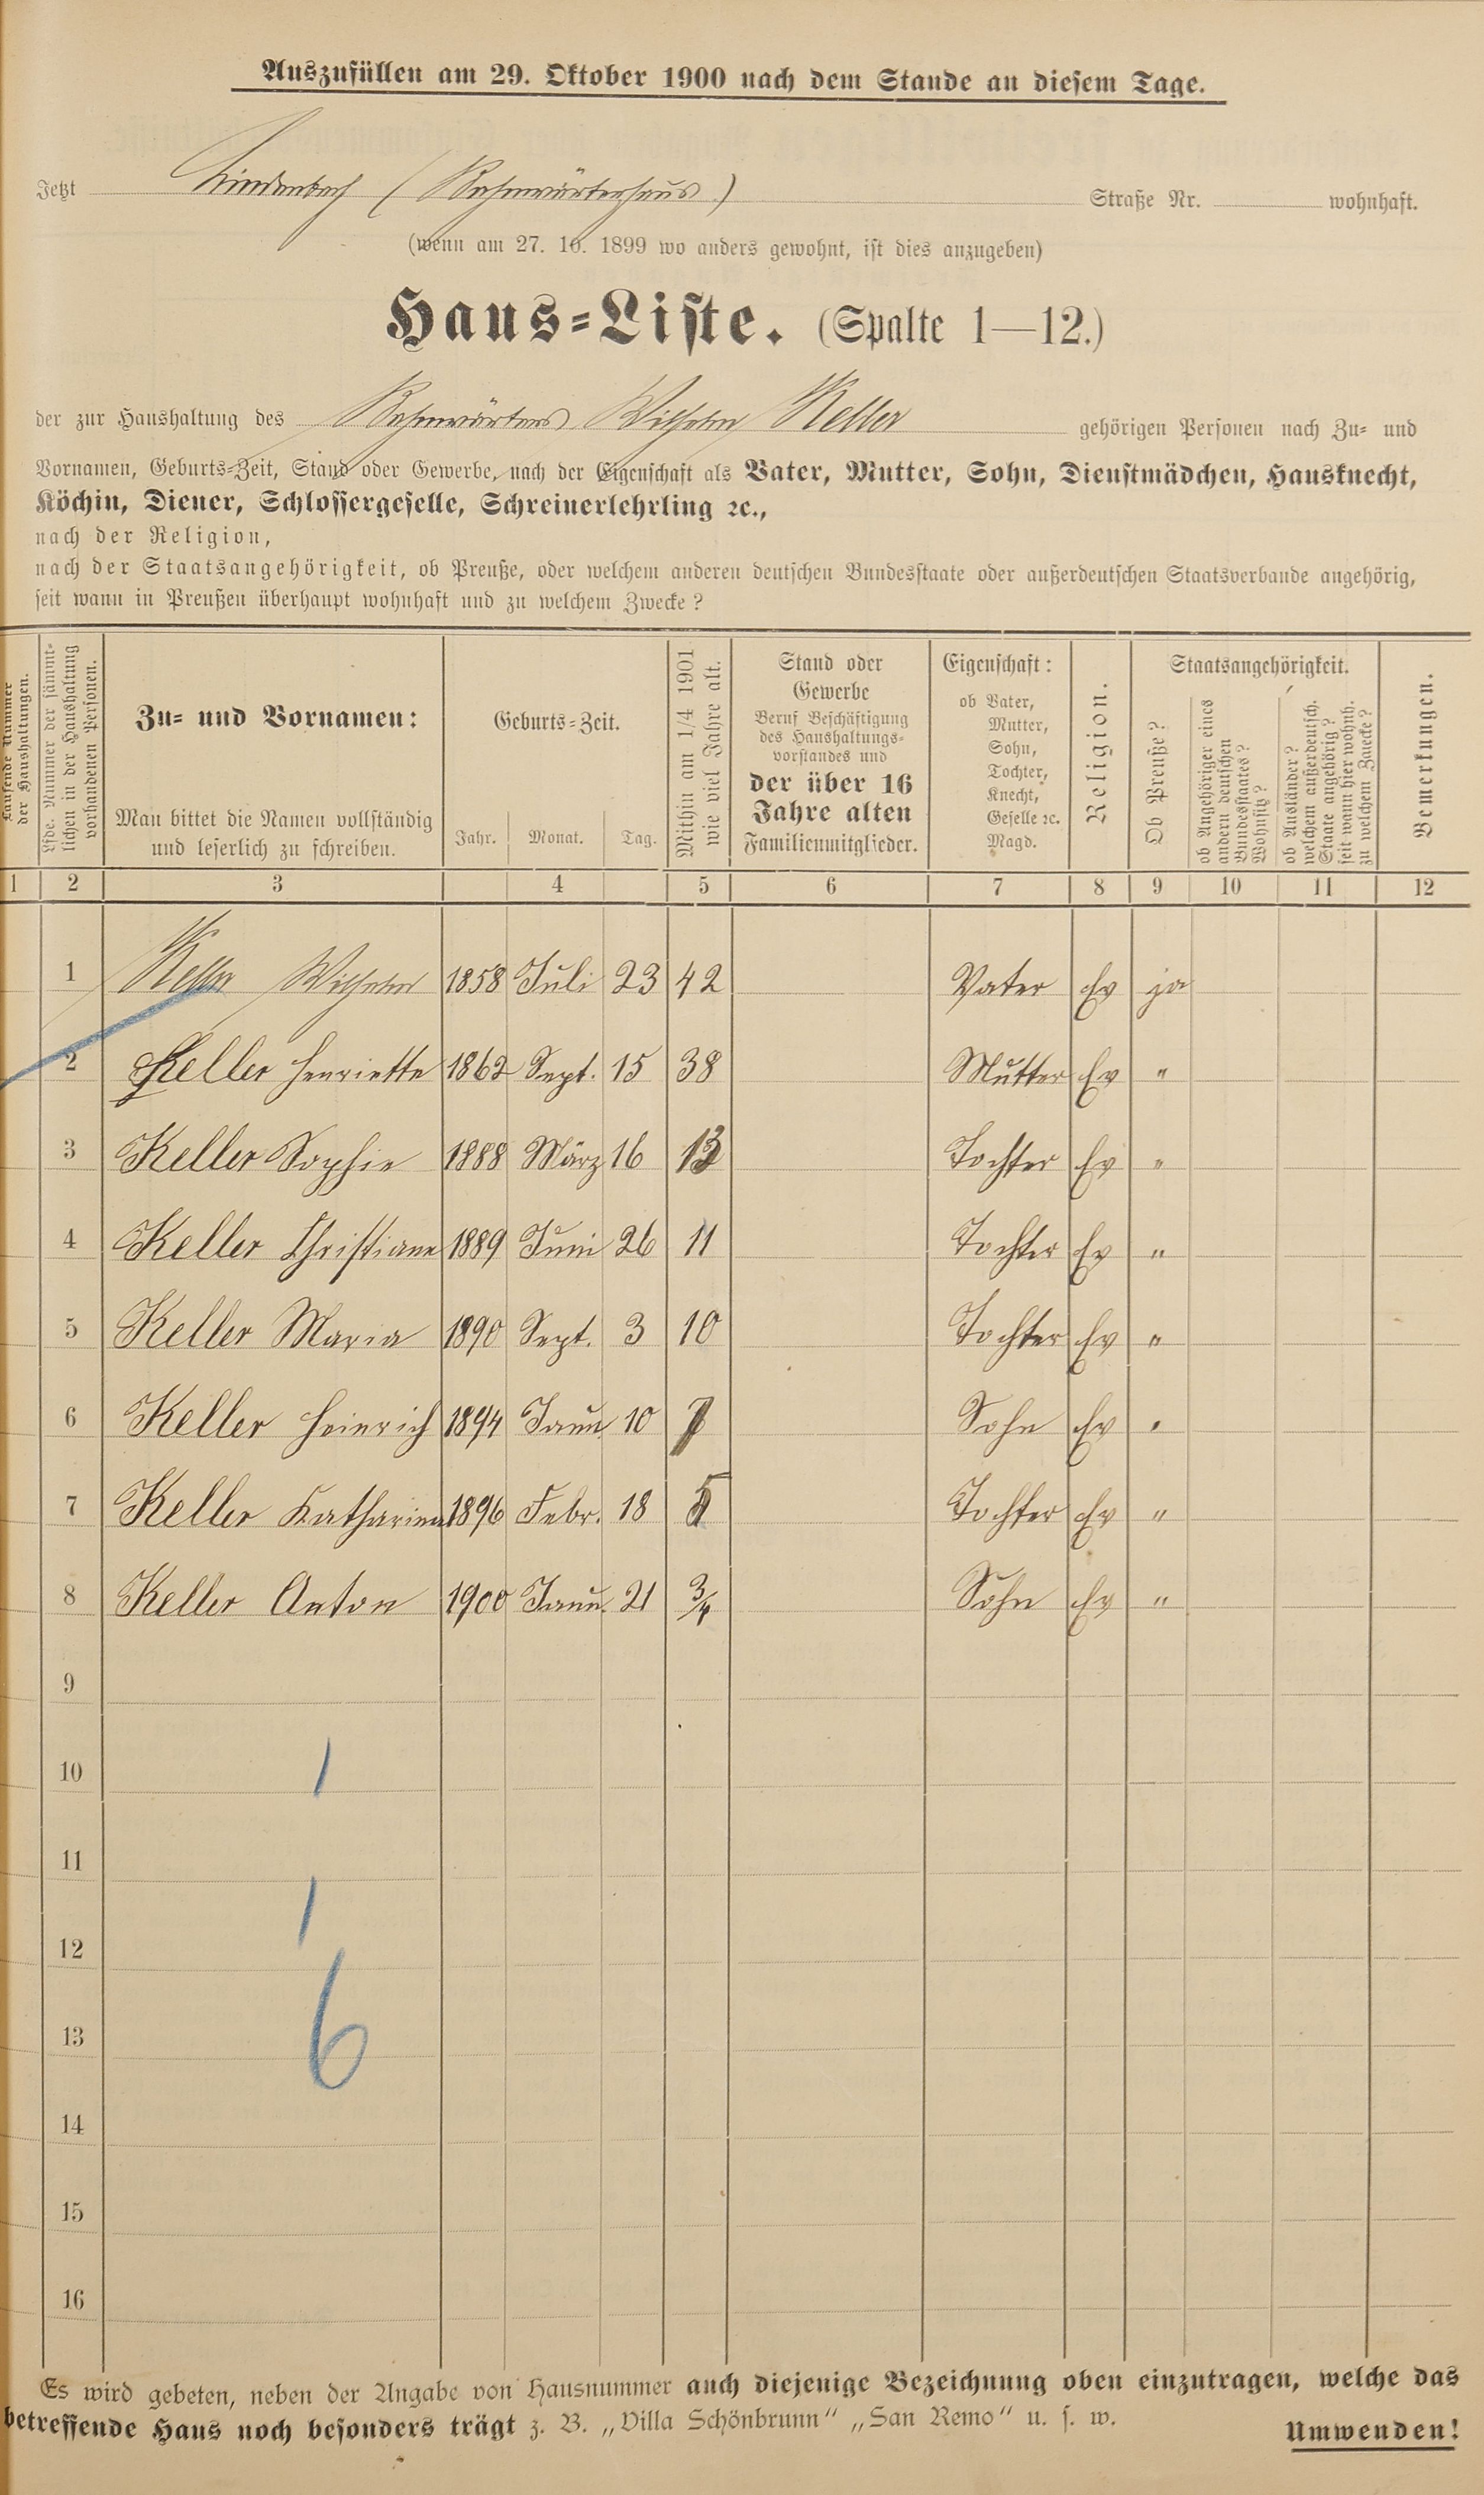 Auszufüllen am 29. Oktober 1900 nach dem Stande an diesem Tage.
Jetzt Lindenbach (Bahnwärterhaus) Straße Nr. wohnhaft.
(wenn am 27. 10. 1899 wo anders gewohnt, ist dies anzugeben)
Haus-Liste. (Spalte 1—12.)
der zur Haushaltung des Bahnwärters Wilhelm Keller gehörigen Personen nach Zu- und
Vornamen, Geburts-Zeit, Stand oder Gewerbe, nach der Eigenschaft als Vater, Mutter, Sohn, Dienstmädchen, Hausknecht,
Köchin, Diener, Schlossergeselle, Schreinerlehrling ꝛc.,
nach der Religion,
nach der Staatsangehörigkeit, ob Preuße, oder welchem anderen deutschen Bundesstaate oder außerdeutschen Staatsverbande angehörig,
seit wann in Preußen überhaupt wohnhaft und zu welchem Zwecke?
Laufende Nummer
der Haushaltungen.
Lfde. Nummer der sämmt-
lichen in der Haushaltung
vorhandenen Personen.
Zu- und Vornamen:
Man bittet die Namen vollständig
und leserlich zu schreiben.
Geburts-Zeit.
Jahr. Monat. Tag.
Mithin am 1/4 1901
wie viel Jahre alt.
Stand oder
Gewerbe
Beruf Beschäftigung
des Haushaltungs-
vorstandes und
der über 16
Jahre alten
Familienmitglieder.
Eigenschaft:
ob Vater,
Mutter,
Sohn,
Tochter,
Knecht,
Geselle ꝛc.
Magd.
Religion.
Staatsangehörigkeit.
Ob Preuße?
ob Angehöriger eines
andern deutschen
Bundesstaates?
Wohnsitz?
ob Ausländer?
welchem außerdeutsch.
Staate angehörig?
seit wann hier wohnh.
zu welchem Zwecke?
Bemerkungen.
1 2 3 4 5 6 7 8 9 10 11 12
1 Keller Wilhelm 1858 Juli 23 42 Vater Ev ja
2 Keller Henriette 1862 Sept. 15 38 Mutter Ev "
3 Keller Sophie 1888 März 16 13 Tochter Ev "
4 Keller Christiane 1889 Juni 26 11 Tochter Ev "
5 Keller Maria 1890 Sept. 3 10 Tochter Ev "
6 Keller Heinrich 1894 Janu. 10 7 Sohn Ev "
7 Keller Katharina 1896 Febr. 18 5 Tochter Ev "
8 Keller Anton 1900 Janu. 21 3/4 Sohn Ev "
9
10 1
11
1
12
13 6
14
15
16
Es wird gebeten, neben der Angabe von Hausnummer auch diejenige Bezeichnung oben einzutragen, welche das
betreffende Haus noch besonders trägt z. B. „Villa Schönbrunn" „San Remo" u. s. w.
Umwenden!